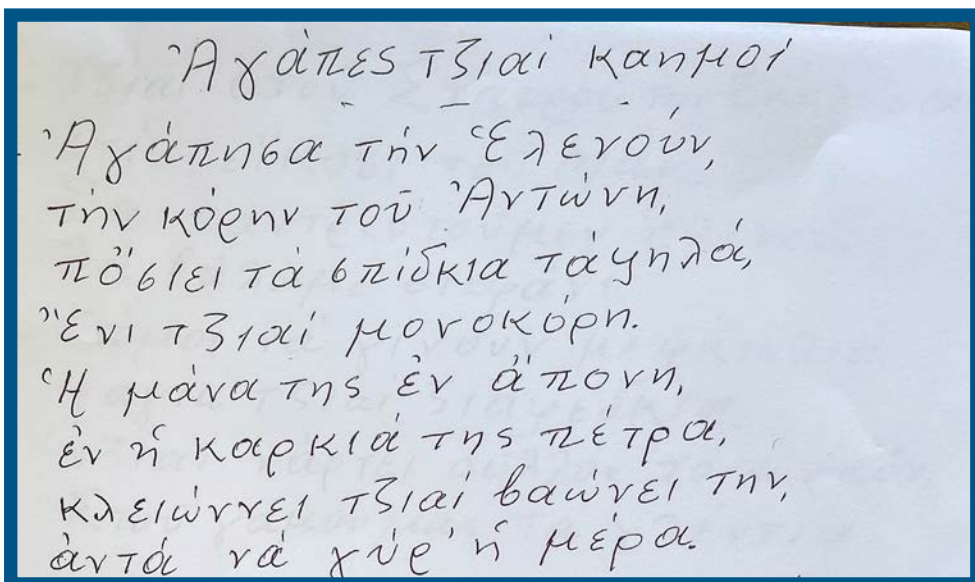 Ἀγάπες τζιαί καημοί
Ἀγάπησα τήν Ἑλενούν,
τήν κόρην τοῦ Ἀντώνη,
πὄσιει τά σπίδκια τάψηλά,
Ἔνι τζιαί μονοκόρη.
Ἡ μάνα της ἐν ἄπονη,
ἐν ἡ καρκιά της πέτρα,
κλειώννει τζιαί βαώνει την,
ἀντά νά γύρ' ἡ μέρα.